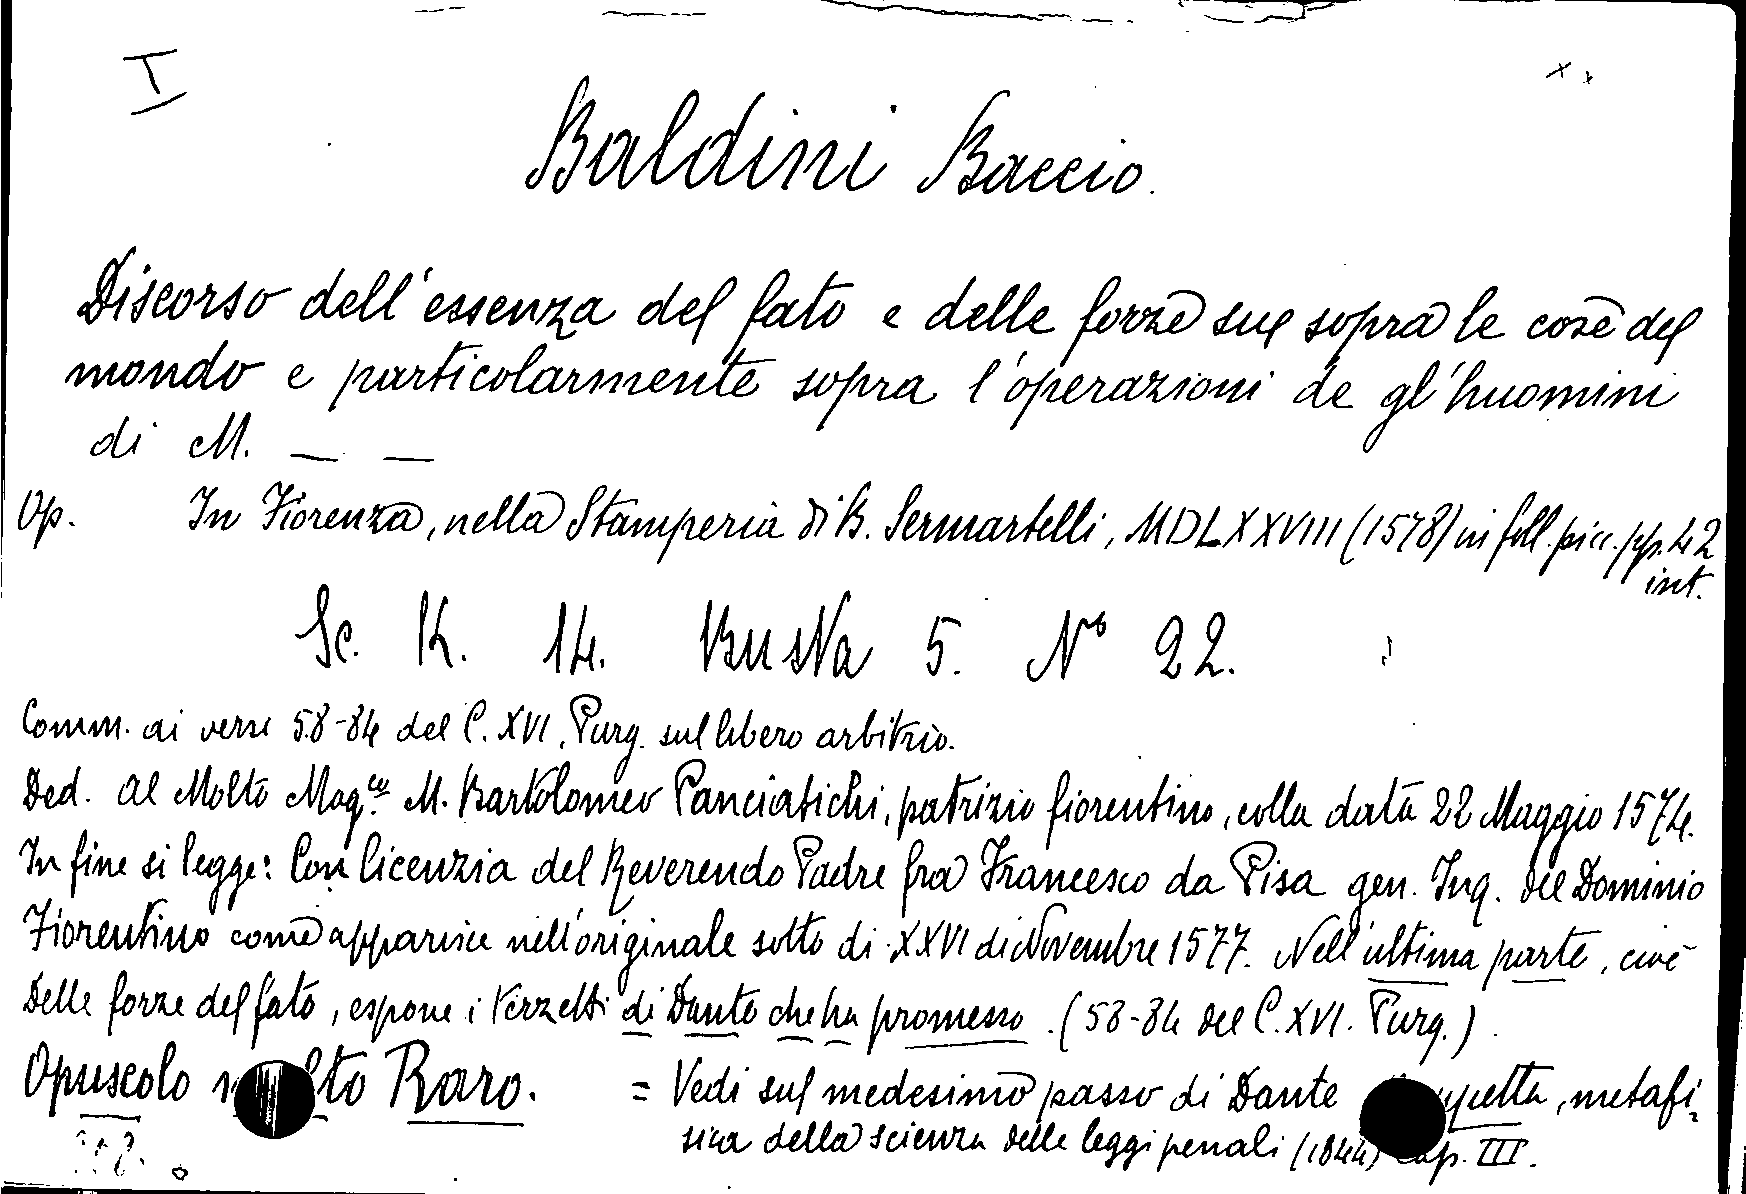 I
Baldini Baccio.
Discorso dell'essenza del fato e delle forze sue sopra le cose del
mondo e particolarmente sopra l'operazioni de gl'huomini
di M. — —
Op. In Fiorenza, nella Stamperia di B. Sermartelli, MDLXXVIII (1578) in foll. picc. pp. 42
int.
Sc. K. 14. Busta 5. N° 22.
Comm. ai versi 58-84 del C. XVI. Purg. sul libero arbitrio.
Ded. Al Molto Mag.co M. Bartolomeo Panciatichi, patrizio fiorentino, colla data 22 Maggio 1574.
In fine si legge: Con licenzia del Reverendo Padre fra Francesco da Pisa gen. Inq. del Dominio
Fiorentino come apparisce nell'originale sotto di XXVI di Novembre 1577. Nell'ultima parte, cioè
delle forze del fato, espone i Verzetti di Dante che ha promesso. (58-84 del C. XVI. Purg.).
Opuscolo Raro. = Vedi sul medesimo passo di Dante metafi-
sica della scienza delle leggi penali (1844) Cap. III.